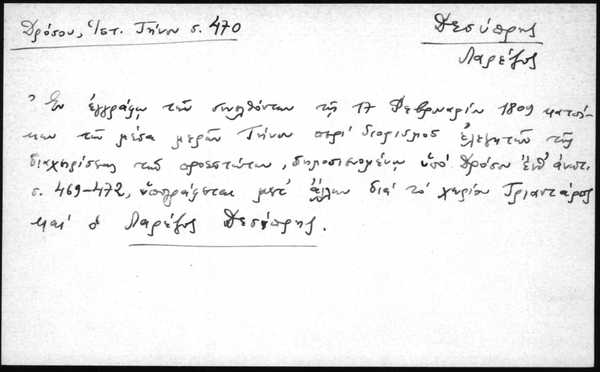 Δρόσου, Ἱστ. Τήνου σ. 470
Δεσύπρης
Λαρέζος
Ἐν ἐγγράφῳ τῶν συνελθόντων τῇ 17 Φεβρουαρίου 1809 κατοί-
κων τῶν μέσα μερῶν Τήνου περί διορισμοῦ ἐλεγκτῶν τῆς
διαχειρίσεως τῶν προεστώτων, δημοσιευομένῳ ὑπό Δρόσου ἔνθ' ἀνωτ.
σ. 469-472, ὑπογράφεται μετ' ἄλλων διά τό χωρίον Τριαντάρος
καί ὁ Λαρέζος Δεσύπρης.